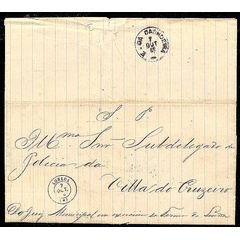 E. DA CACHOEIRA
7
OUT
S. P.
Illmo Snr Subdelegado de
Policia da
Villa do Cruzeiro
LORENA
7 OUT
Do Juiz Municipal em exercicio do Termo de